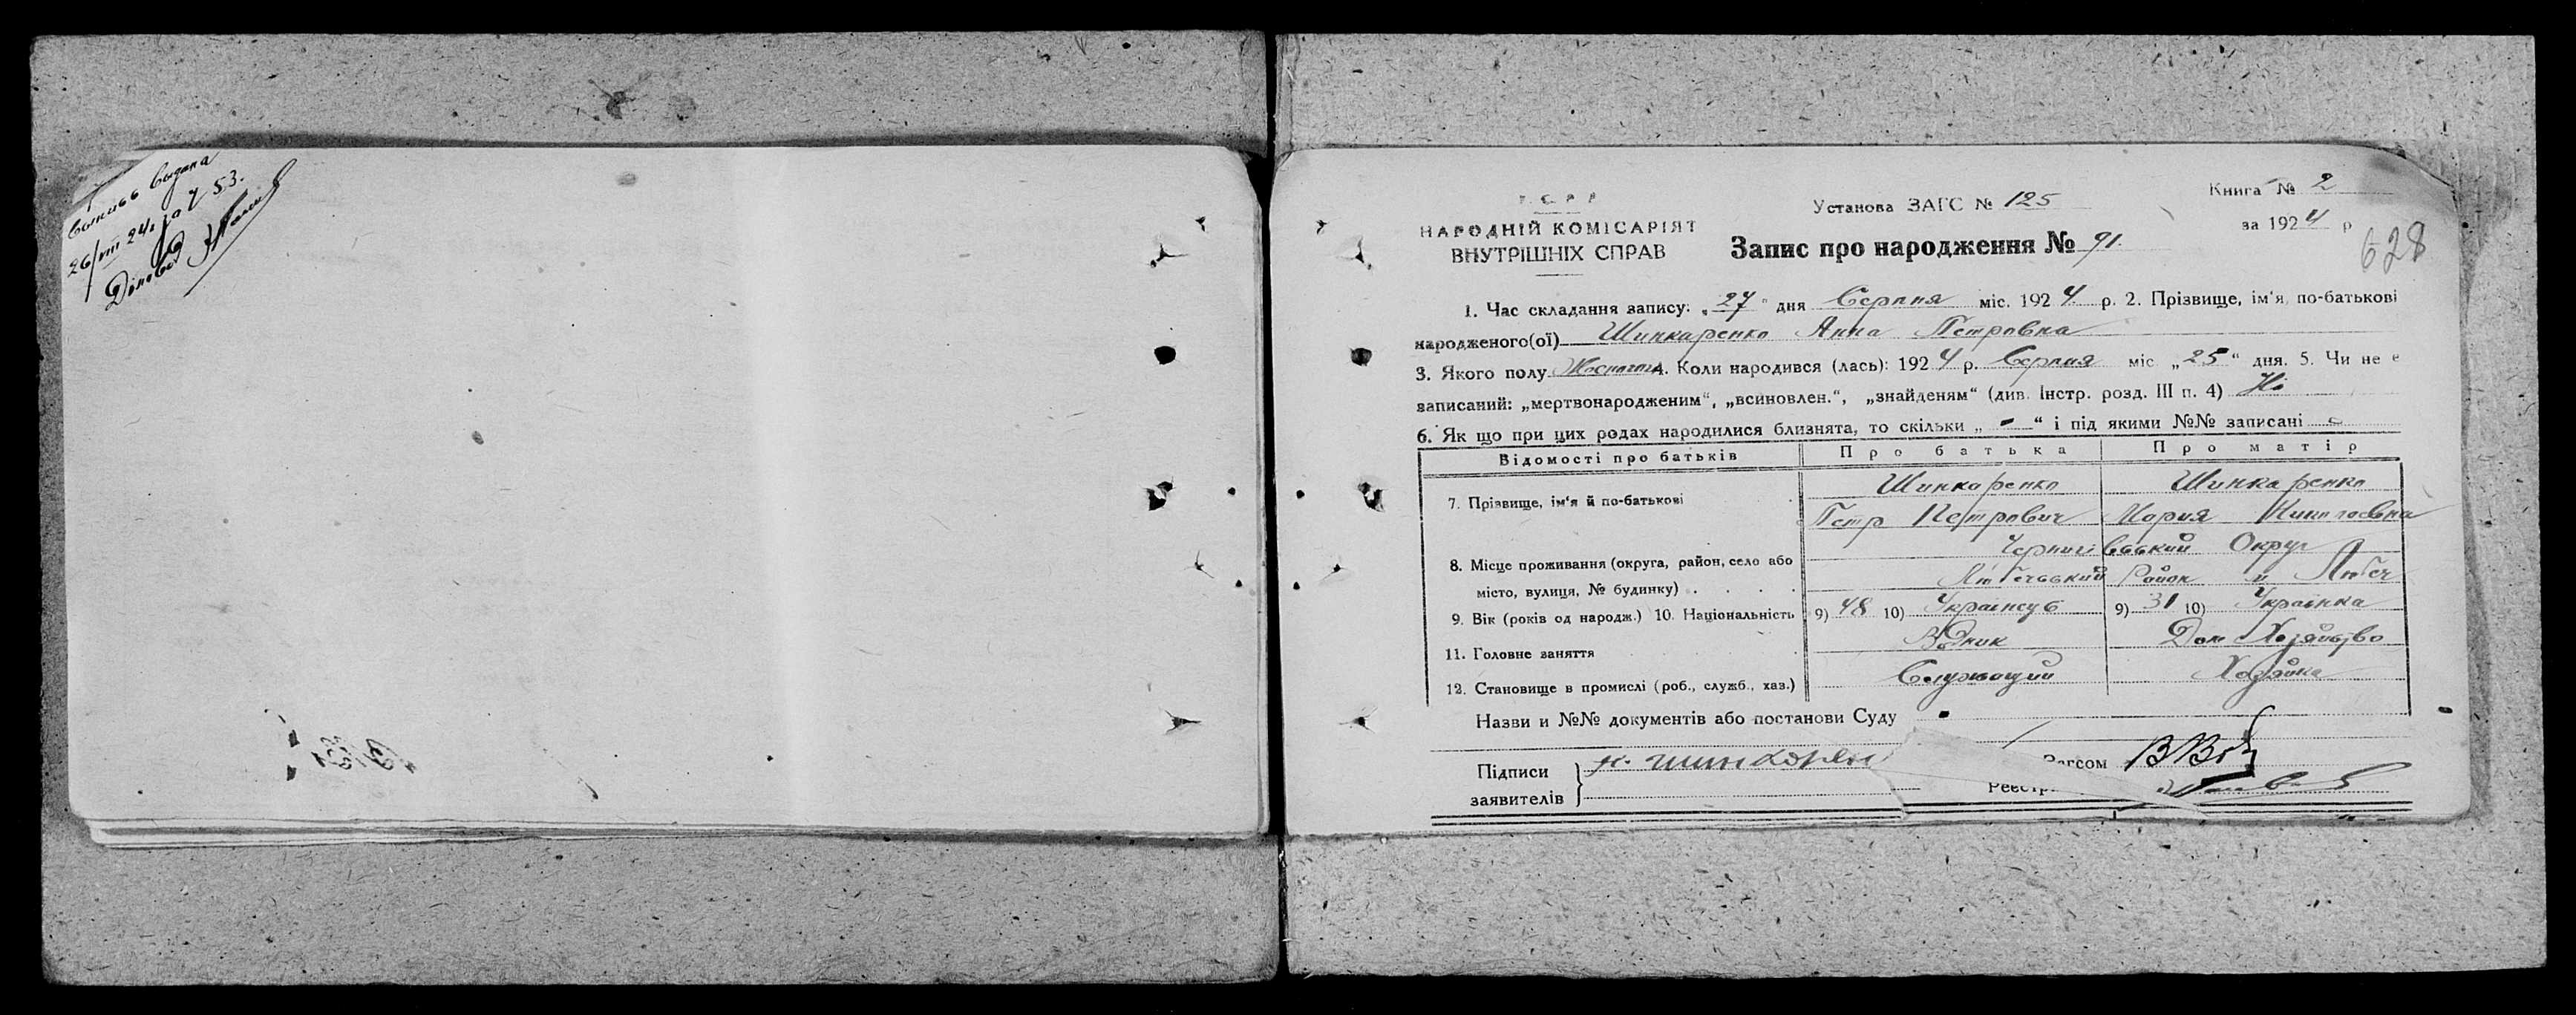 Выпись выдана
26/VIII 24. за № 53.
Діловод
У.С.Р.Р.
НАРОДНІЙ КОМІСАРІЯТ
ВНУТРІШНІХ СПРАВ
Установа ЗАГС № 125
Книга № 2
за 1924 р
Запис про народження № 91.
628
1. Час складання запису: „27“ дня Серпня міс. 1924 р. 2. Прізвище, ім‘я, по-батькові
народженого(ої) Шинкаренко Анна Петровна
3. Якого полу Женского 4. Коли народився (лась): 1924 р. Серпня міс „25“ дня. 5. Чи не є
записаний: „мертвонародженим“, „всиновлен.“, „знайденям“ (див. Інстр. розд. III п. 4) Ні
6. Як що при цих родах народилися близнята, то скільки „ - “ і під якими №№ записані -
Відомості про батьків Про батька Про матір
7. Прізвище, ім‘я й по-батькові Шинкаренко Шинкаренко
Петр Петрович Мария Николаевна
8. Місце проживання (округа, район, село або Чернигівський Округ
місто, вулиця, № будинку) . . . . Любечський Район м Любеч
9. Вік (років од народж.) 10. Національність 9) 48 10) Українець 9) 31 10) Українка
11. Головне заняття Водник Дом Хозяйство
12. Становище в промислі (роб., служб., хаз.) Служащий Хозяйка
Назви и №№ документів або постанови Суду -
Підписи
заявителів
Загсом
Реєстр.